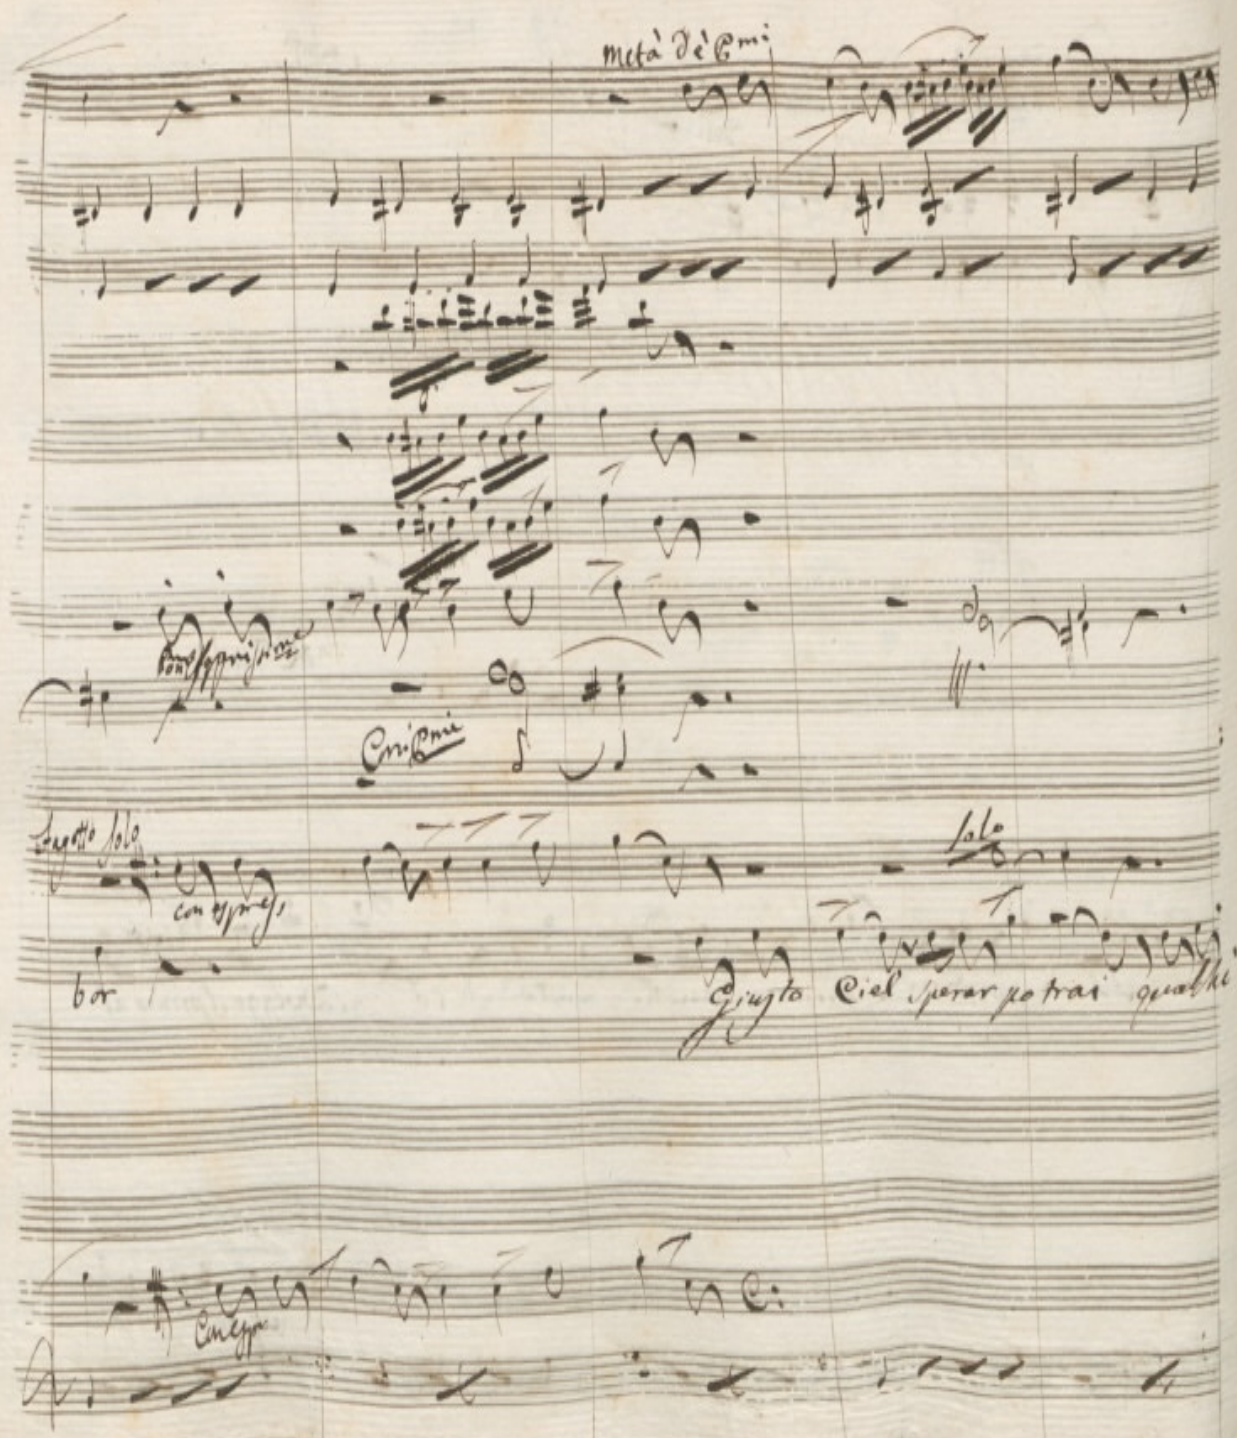 metà dè Pmi
con espressione
Corni Pmi
Fagotto solo
solo
con espress.
bor
Giusto Ciel sperar potrai qualche
Con esp